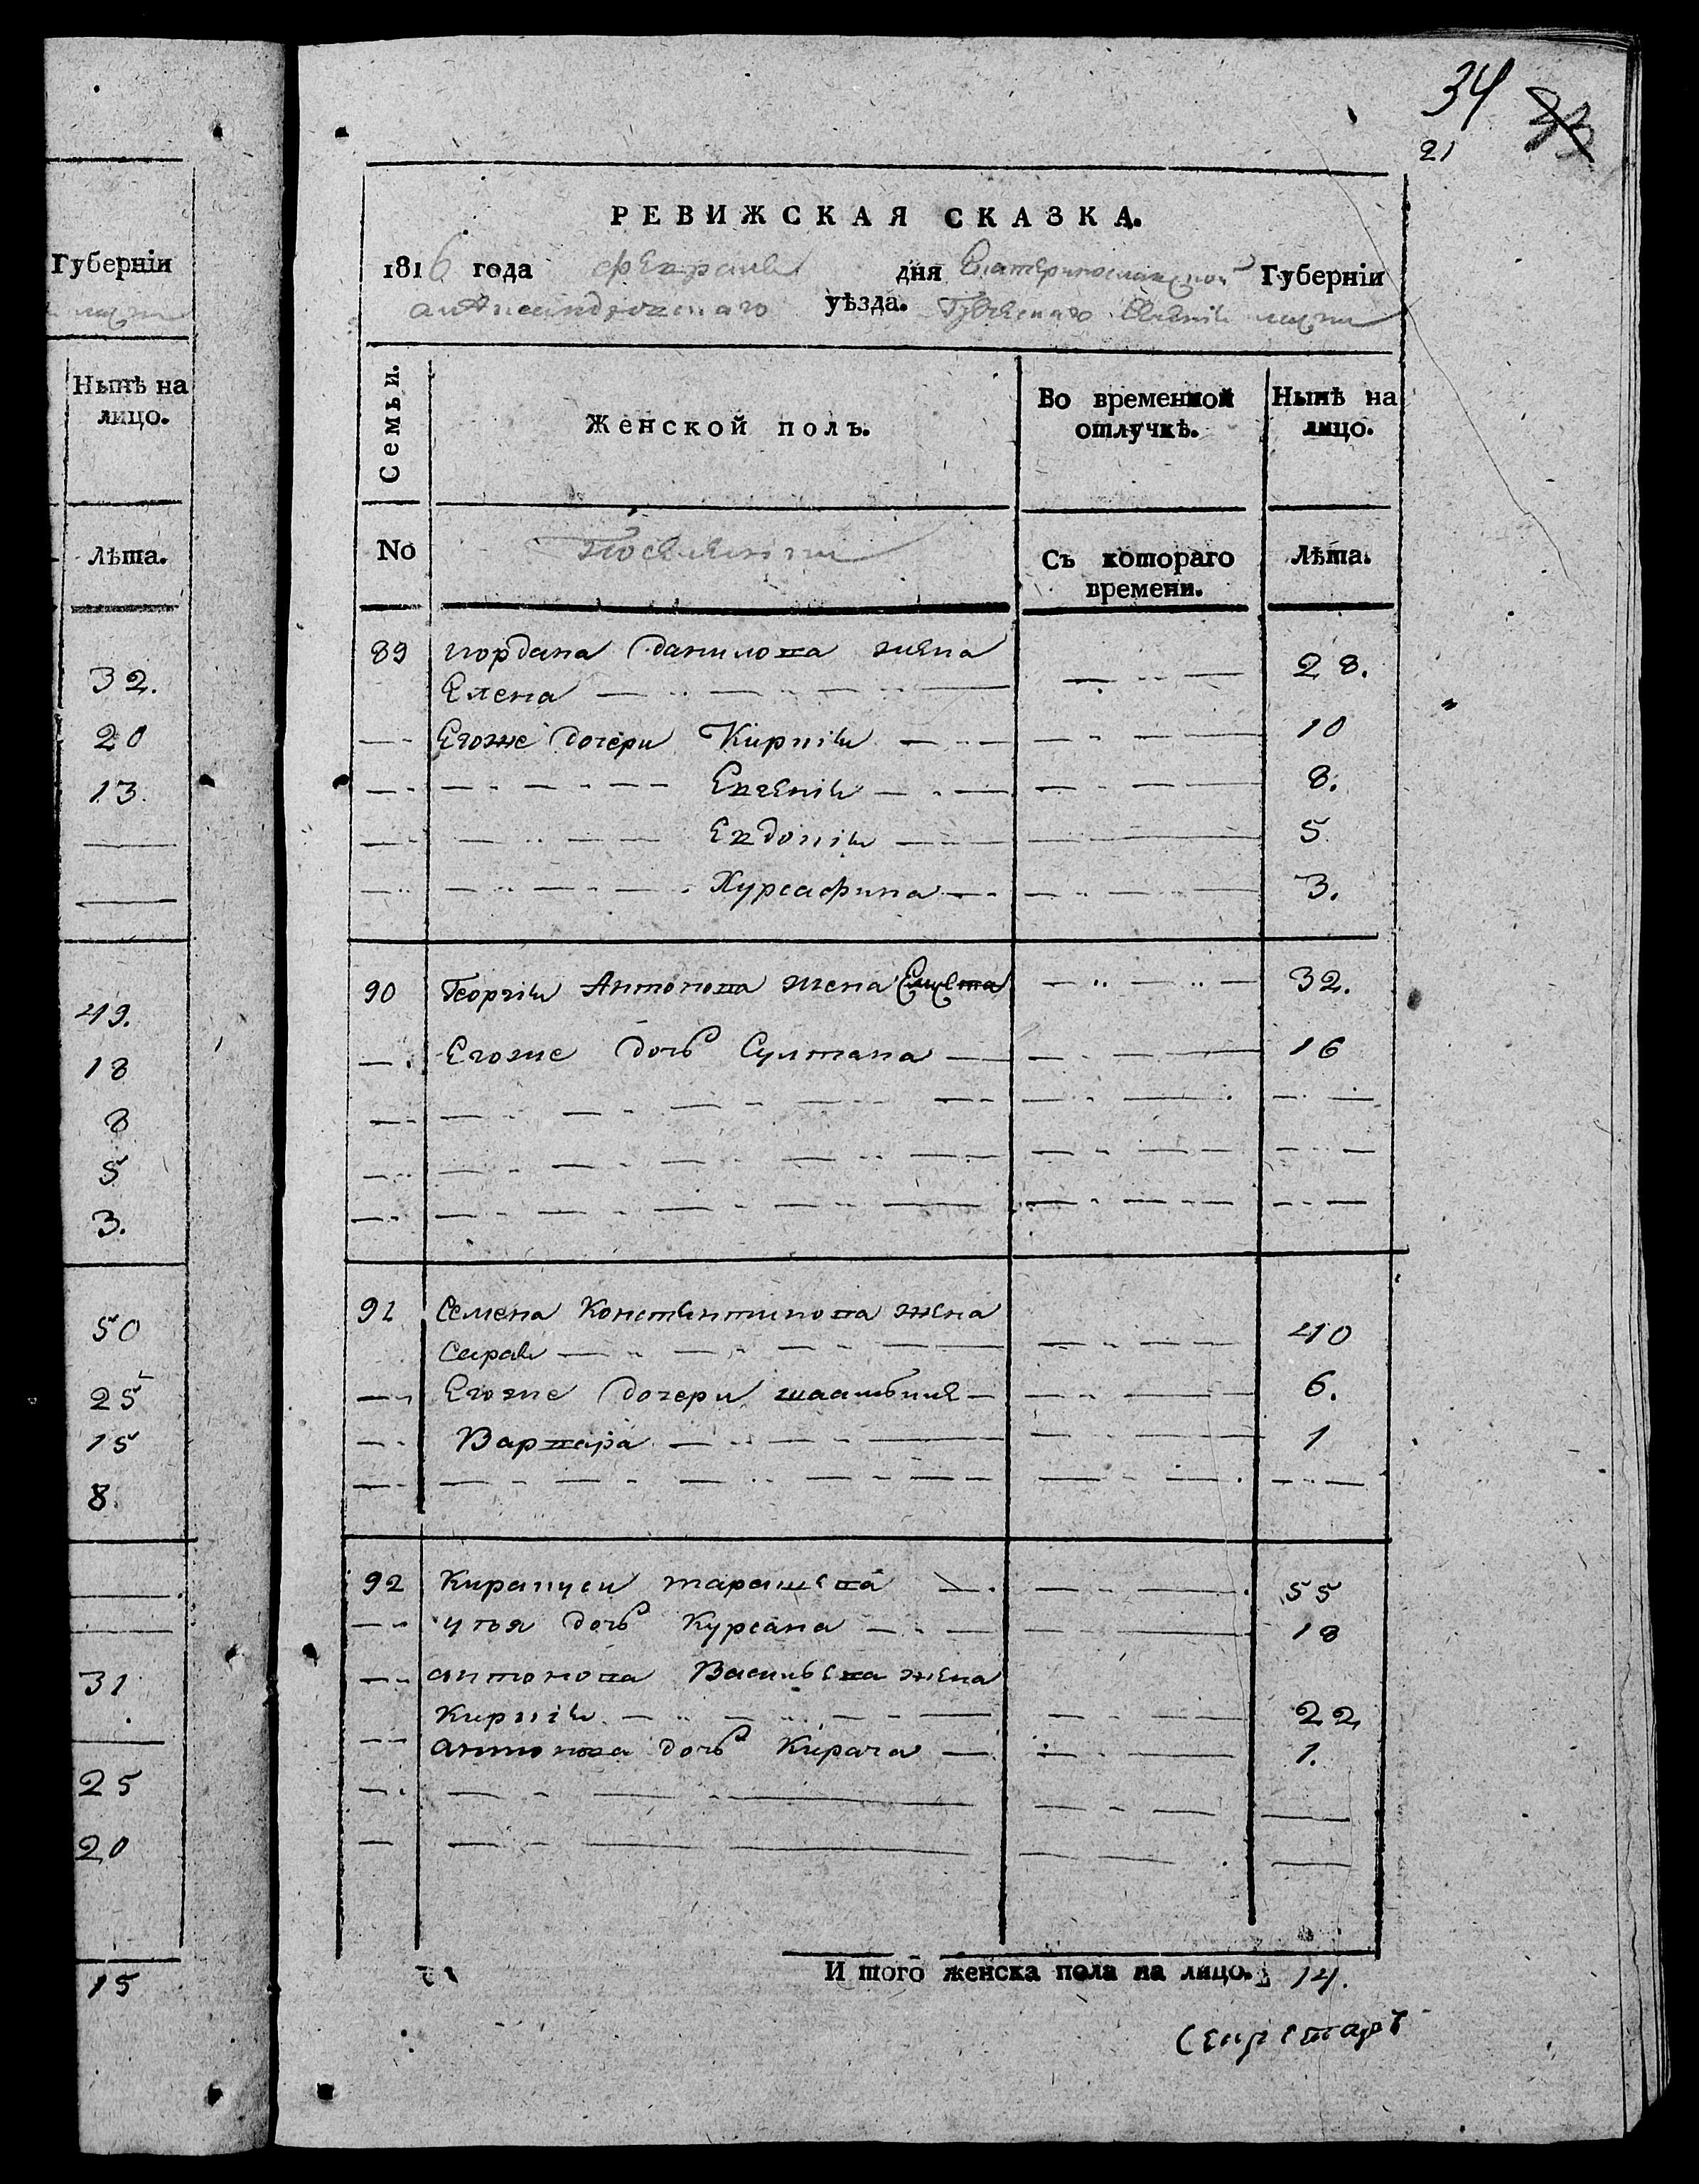 34 33
21
Губерніи
Нынѣ на
лицо.
Лѣта.
32.
20
13.
49.
18
8
5
3.
50
25
15
8.
31
25
20
15
РЕВИЖСКАЯ СКАЗКА.
1816 года февраля дня Екатеринославской Губерніи
александровского уѣзда.
Семьи. Женской полъ. Во временной отлучкѣ. Нынѣ на лицо.
No Съ котораго времени. Лѣта.
89 иордана данилова жена
Елена 28.
Егоже дочери Кирпія 10
Евгенія 8.
Евдокія 5
Хурсафина 3.
90 Георгія Антонова жена 32.
Егоже дочь Султана 16
91 Семена Константинова жена
Сарая 40
Егоже дочери 6.
Варвара 1
92 55
дочь Курсана 18
антонова Васильева жена
Кирпія 22
антонова дочь Кирача 1.
И того женска пола на лицо. 14.
Секретарь